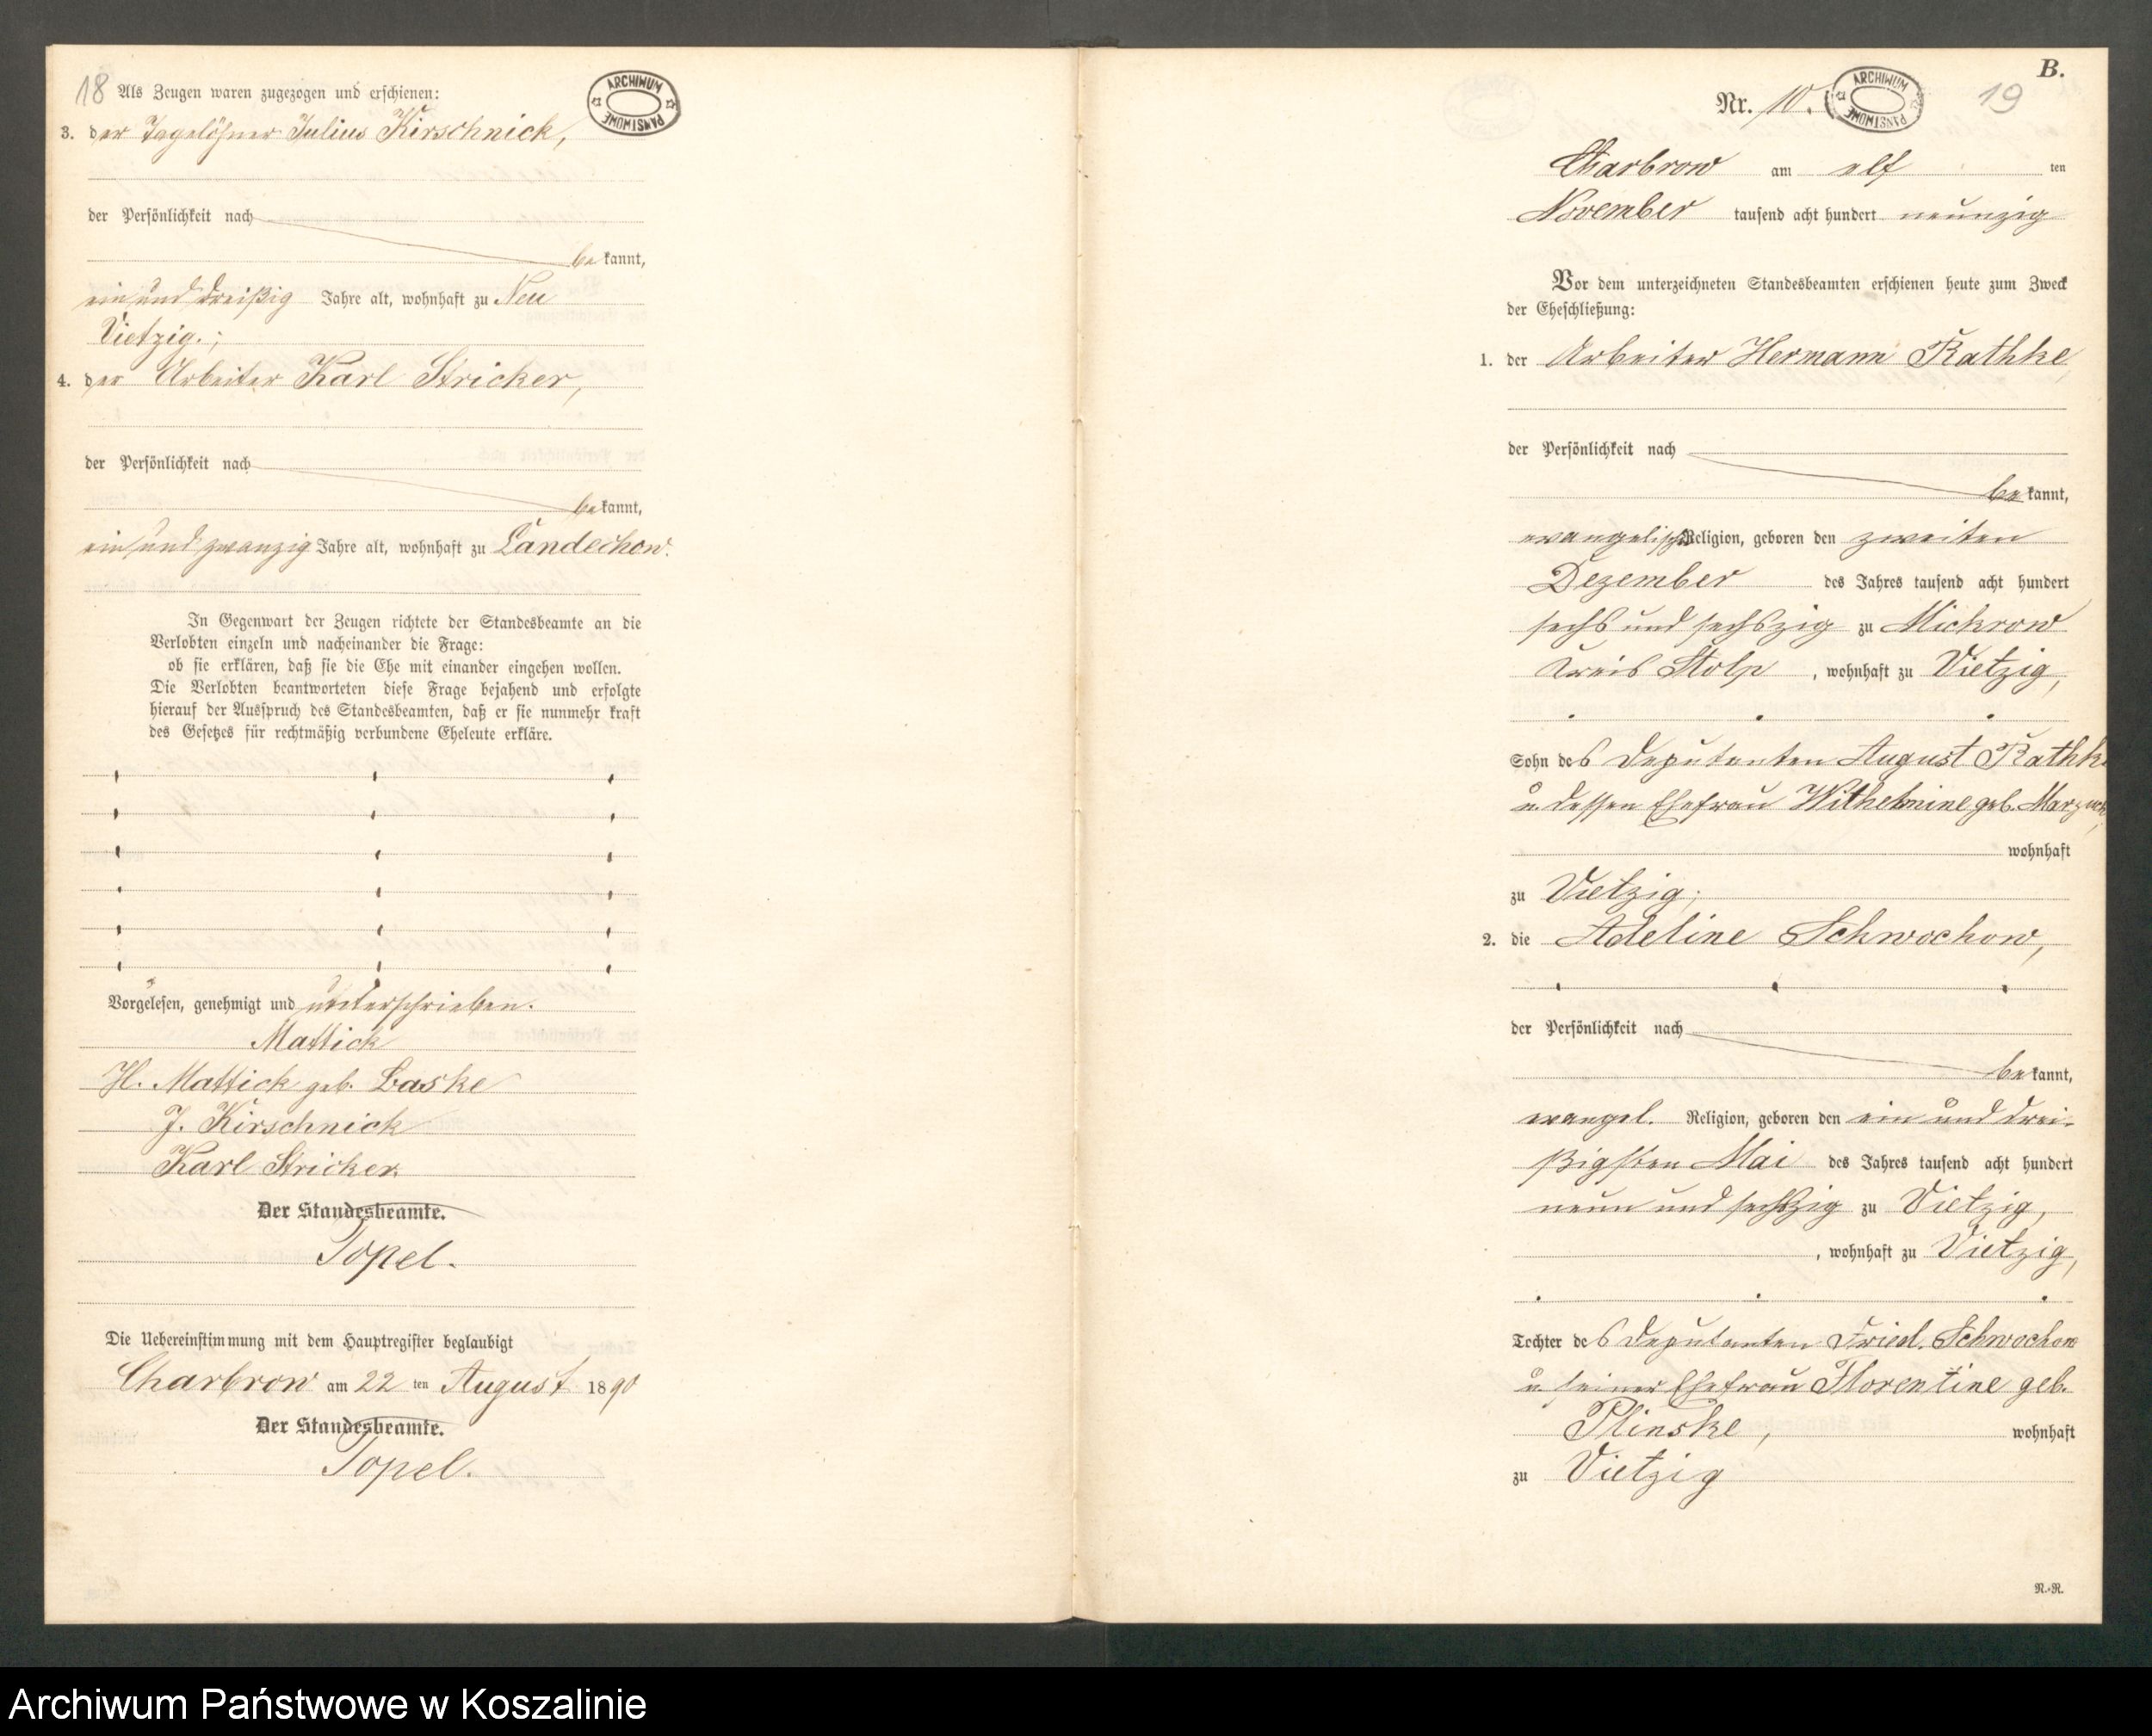 18
Als Zeugen waren zugezogen und erschienen:
ARCHIWUM PAŃSTWOWE
3. der Tagelöhner Julius Kirschnick,
der Persönlichkeit nach
be kannt,
ein und dreißig Jahre alt, wohnhaft zu Neu
Vietzig.;
4. der Arbeiter Karl Stricker,
der Persönlichkeit nach
be kannt,
ein und zwanzig Jahre alt, wohnhaft zu Landechow.
In Gegenwart der Zeugen richtete der Standesbeamte an die
Verlobten einzeln und nacheinander die Frage:
ob sie erklären, daß sie die Ehe mit einander eingehen wollen.
Die Verlobten beantworteten diese Frage bejahend und erfolgte
hierauf der Ausspruch des Standesbeamten, daß er sie nunmehr kraft
des Gesetzes für rechtmäßig verbundene Eheleute erkläre.
Vorgelesen, genehmigt und unterschrieben.
Mattick
H. Mattick geb. Laske
J. Kirschnick
Karl Stricker
Der Standesbeamte.
Topel.
Die Uebereinstimmung mit dem Hauptregister beglaubigt
Charbrow am 22 ten August 1890
Der Standesbeamte.
Topel.
B.
Nr. 10.
ARCHIWUM PAŃSTWOWE
19
Charbrow am elf ten
November tausend acht hundert neunzig
Vor dem unterzeichneten Standesbeamten erschienen heute zum Zweck
der Eheschließung:
1. der Arbeiter Hermann Rathke,
der Persönlichkeit nach
be kannt,
evangelischer Religion, geboren den zweiten
Dezember des Jahres tausend acht hundert
sechs und sechszig zu Mickrow
Kreis Stolp, wohnhaft zu Vietzig,
Sohn des Deputanten August Rathke
u. dessen Ehefrau Wilhelmine geb.
wohnhaft
zu Vietzig;
2. die Adeline Schwochow,
der Persönlichkeit nach
be kannt,
evangel. Religion, geboren den ein und drei-
ßigsten Mai des Jahres tausend acht hundert
neun und sechszig zu Vietzig,
, wohnhaft zu Vietzig,
Tochter des Deputanten Friedl. Schwochow
u. seiner Ehefrau Florentine geb.
Plinske, wohnhaft
zu Vietzig
R.-R.
Archiwum Państwowe w Koszalinie